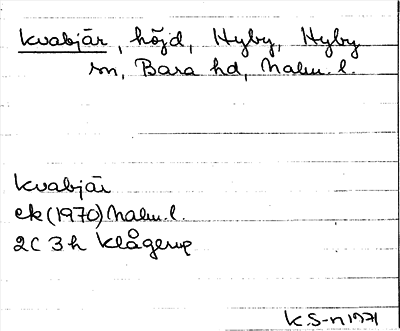 Kvabjär, höjd, Hyby, Hyby
sn, Bara hd, Malm. l.
Kvabjär
ek (1970) Malm. l.
2C 3h Klågerup
K.S-n 1971